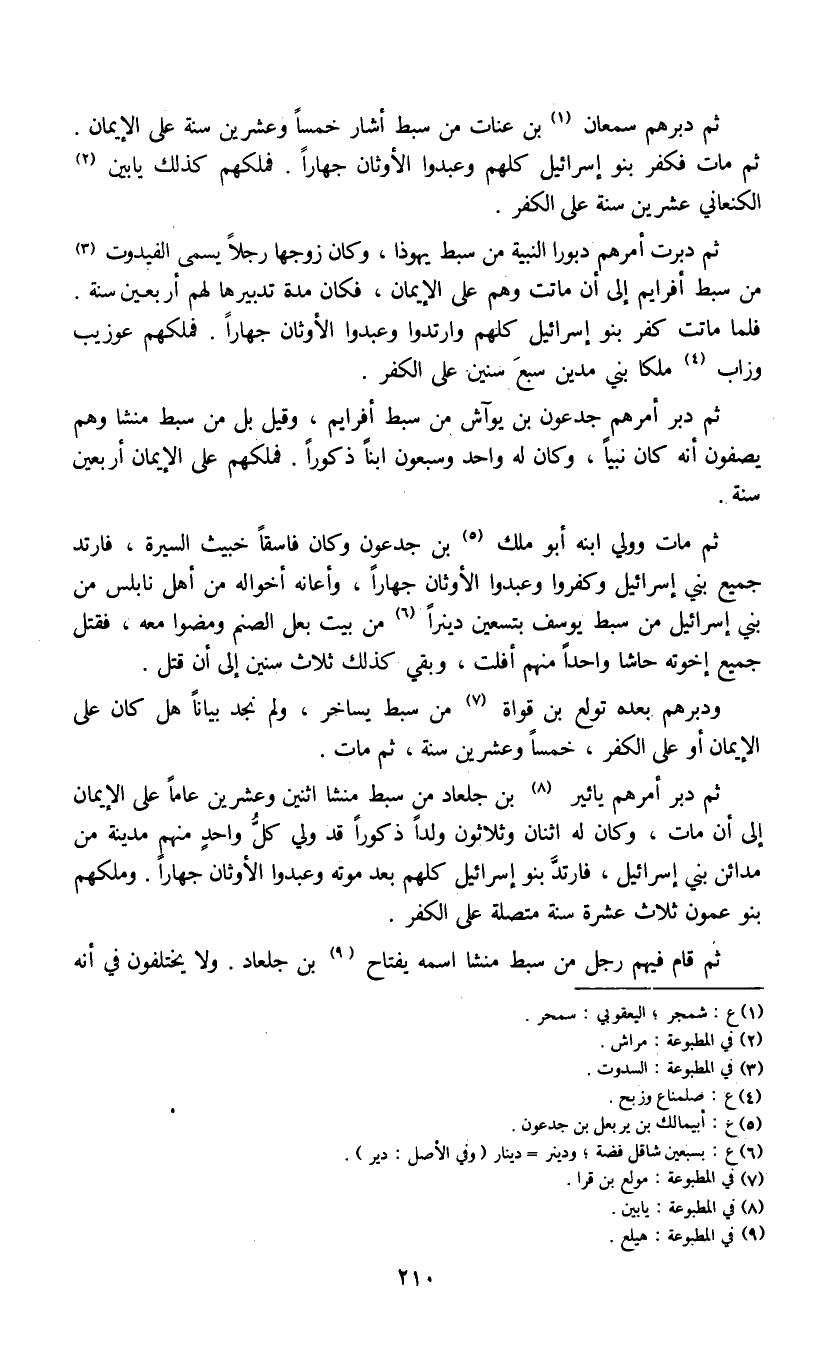 ثم دبرهم سمعان (١) بن عنات من سبط أشار خمساً وعشرين سنة على الإيمان .
ثم مات فكفر بنو إسرائيل كلهم وعبدوا الأوثان جهاراً . فملكهم كذلك يابين (٢)
الكنعاني عشرين سنة على الكفر .
ثم دبرت أمرهم دبورا النبية من سبط يهوذا ، وكان زوجها رجلاً يسمى الفيدوت (٣)
من سبط أفرايم إلى أن ماتت وهم على الإيمان ، فكان مدة تدبيرها لهم أربعين سنة .
فلما ماتت كفر بنو إسرائيل كلهم وارتدوا وعبدوا الأوثان جهاراً . فملكهم عوزيب
وزاب (٤) ملكا بني مدين سبعَ سنين على الكفر .
ثم دبر أمرهم جدعون بن يوآش من سبط أفرايم ، وقيل بل من سبط منشا وهم
يصفون أنه كان نبياً ، وكان له واحد وسبعون ابناً ذكوراً . فملكهم على الإيمان أربعين
سنة .
ثم مات وولي ابنه أبو ملك (٥) بن جدعون وكان فاسقاً خبيث السيرة ، فارتد
جميع بني إسرائيل وكفروا وعبدوا الأوثان جهاراً ، وأعانه أخواله من أهل نابلس من
بني إسرائيل من سبط يوسف بتسعين دينراً (٦) من بيت بعل الصنم ومضوا معه ، فقتل
جميع إخوته حاشا واحداً منهم أفلت ، وبقي كذلك ثلاث سنين إلى أن قتل .
ودبرهم بعده تولع بن قواة (٧) من سبط يساخر ، ولم نجد بياناً هل كان على
الإيمان أو على الكفر ، خمساً وعشرين سنة ، ثم مات .
ثم دبر أمرهم يائير (٨) بن جلعاد من سبط منشا اثنين وعشرين عاماً على الإيمان
إلى أن مات ، وكان له اثنان وثلاثون ولداً ذكوراً قد ولي كلُّ واحدٍ منهم مدينة من
مدائن بني إسرائيل ، فارتدَّ بنو إسرائيل كلهم بعد موته وعبدوا الأوثان جهاراً . وملكهم
بنو عمون ثلاث عشرة سنة متصلة على الكفر .
ثم قام فيهم رجل من سبط منشا اسمه يفتاح (٩) بن جلعاد . ولا يختلفون في أنه
(١) ع : شمجر ؛ اليعقوبي : سمحر .
(٢) في المطبوعة : مراش .
(٣) في المطبوعة : السدوت .
(٤) ع : صلمناع وزبح .
(٥) ع : أبيمالك بن يربعل بن جدعون .
(٦) ع : بسبعين شاقل فضة ؛ ودينر = دينار ( وفي الأصل : دير ) .
(٧) في المطبوعة : مولع بن قرا .
(٨) في المطبوعة : يابين .
(٩) في المطبوعة : هيلع .
٢١٠